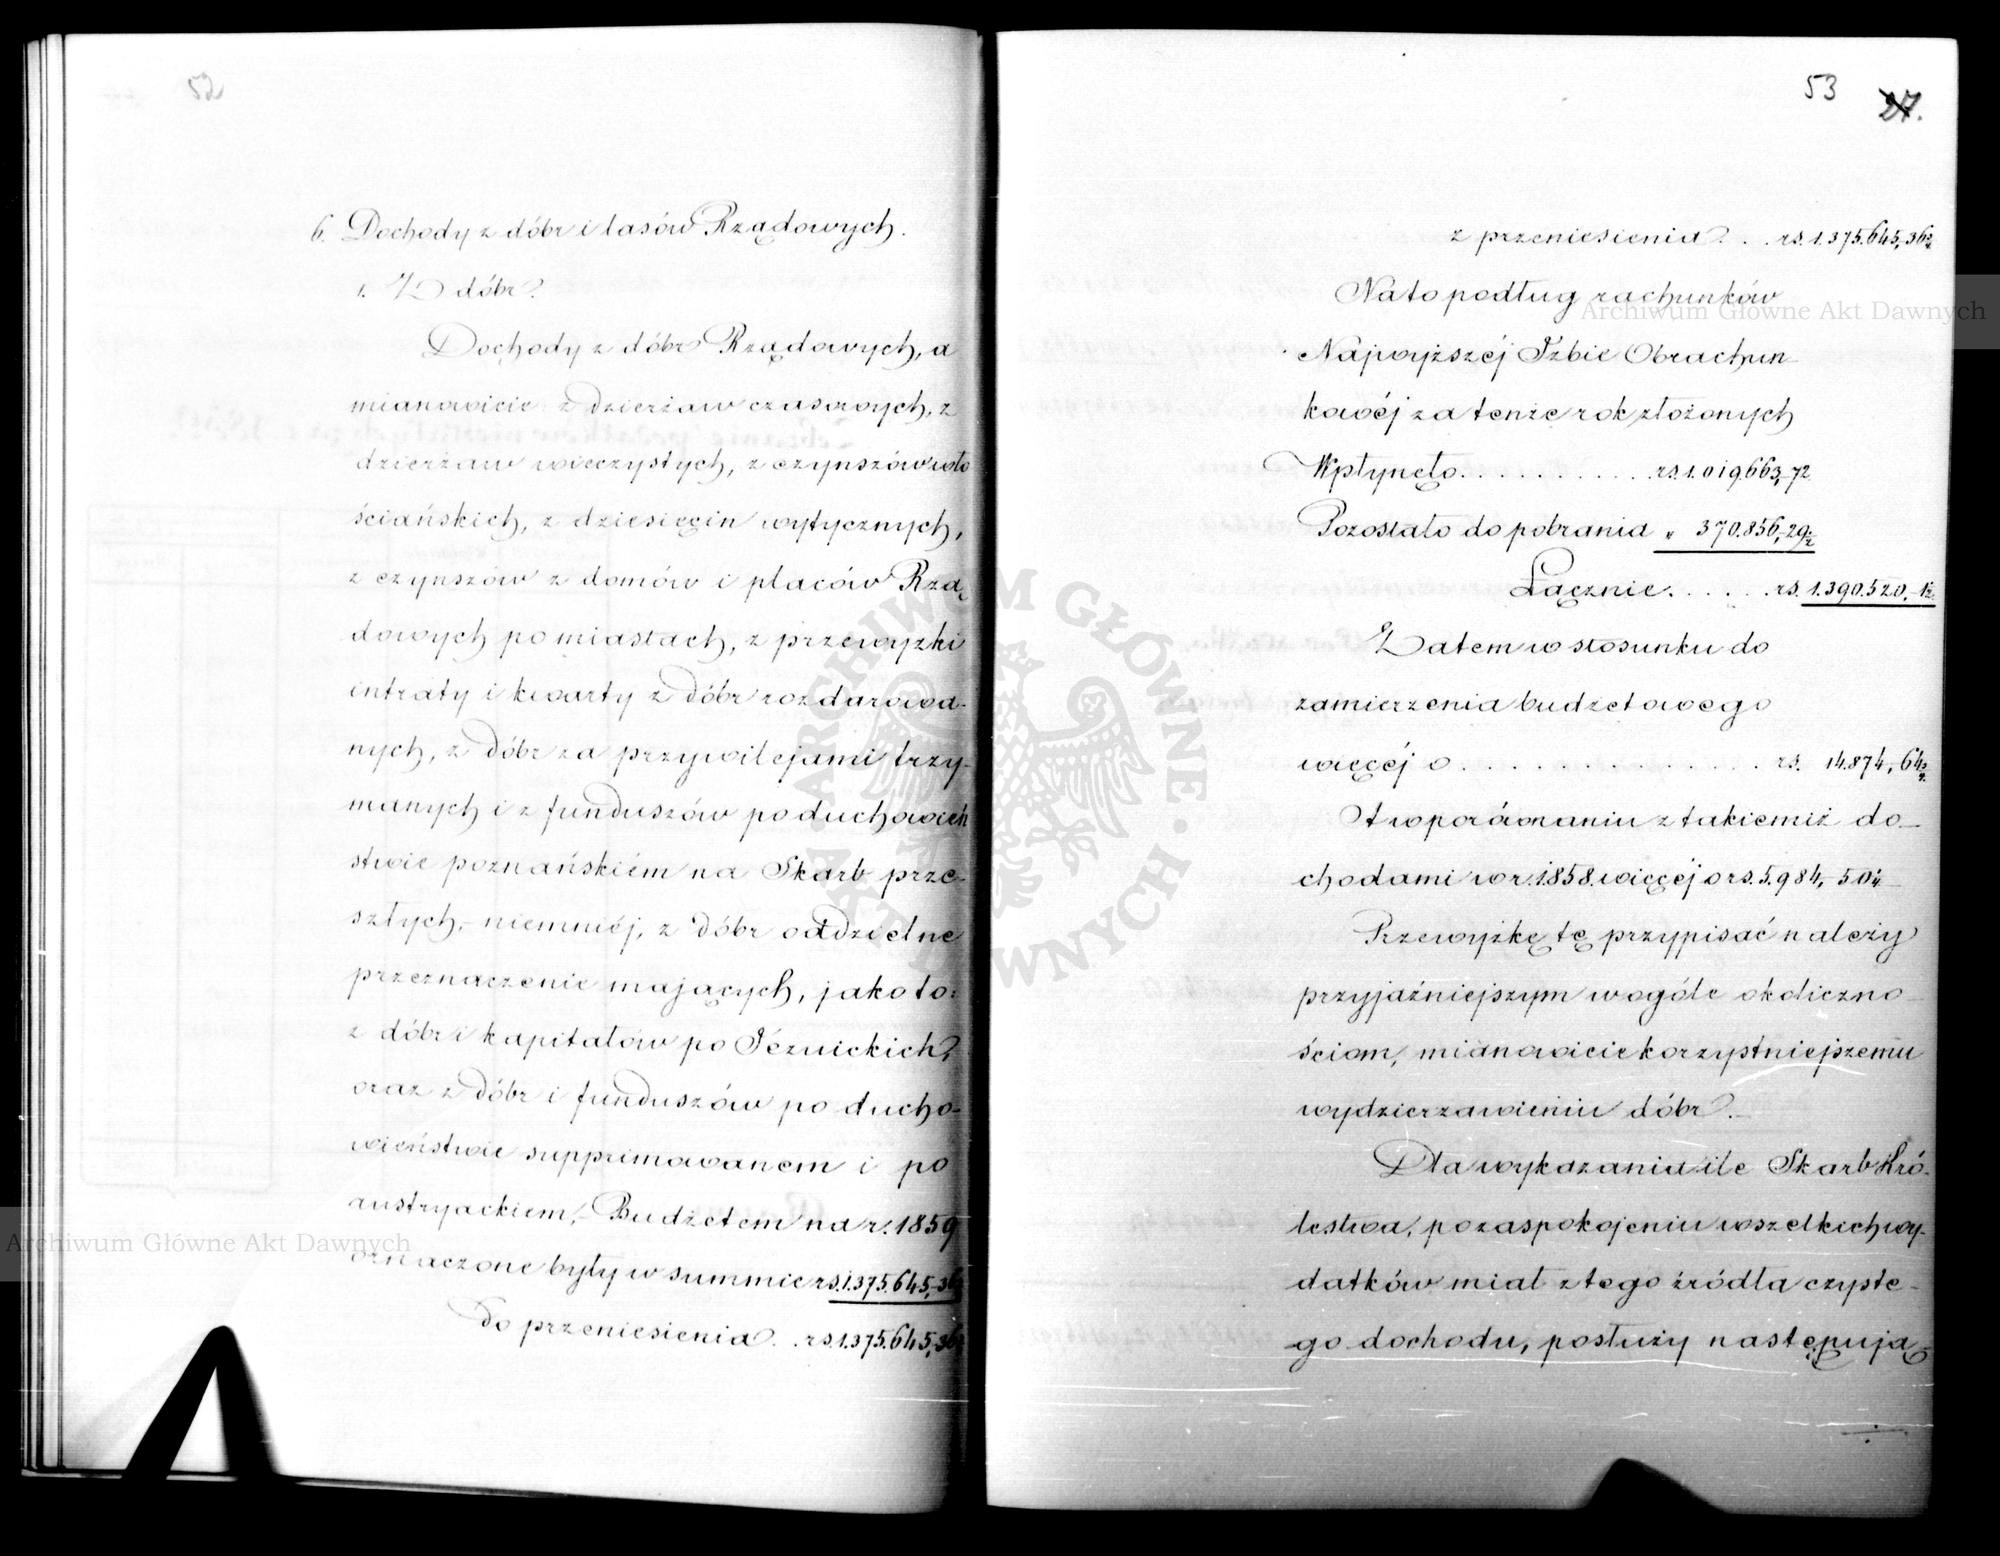 52
6. Dochody z dóbr i lasów Rządowych.
1. Z dóbr.
Dochody z dóbr Rządowych, a
mianowicie z dzierżaw czasowych, z
dzierżaw wieczystych, z czynszów wło
ściańskich, z dziesięcin wytycznych,
z czynszów z domów i placów Rzą
dowych po miastach, z przewyżki
intraty i kwarty z dóbr rozdarowa-
nych, z dóbr za przywilejami trzy-
manych i z funduszów po duchowień
stwie poznańskiém na Skarb prze-
szłych, niemniéj, z dóbr oddzielne
przeznaczenie mających, jako to:
z dóbr i kapitałów po Jézuickich,
oraz z dóbr i funduszów po ducho-
wieństwie supprimowanem i po
austryackiem, Budżetem na r. 1859
oznaczone były w summie rs. 1.375.645,36
Do przeniesienia . . rs. 1.375.645,36
53 27.
z przeniesienia . . rs. 1.375.645,36
Na to podług rachunków
Najwyższéj Izbie Obrachun
kowéj za tenże rok złożonych
Wpłynęło . . . . . . . . . . rs. 1.019.663,72
Pozostało do pobrania „ 370.856,29½
Łącznie . . . . . rs. 1.390.520,-1½
Zatem w stosunku do
zamierzenia budżetowego
więcéj o . . . . . . . . . . . . . . rs. 14.874, 64
A w porównaniu z takiemiż do-
chodami w r. 1858. więcéj o rs. 5.984, 50
Przewyżkę tę przypisać należy
przyjaźniejszym wogóle okoliczno-
ściom, mianowicie korzystniejszemu
wydzierzawieniu dóbr.
Dla wykazania ile Skarb Kró-
lestwa, po zaspokojeniu wszelkich wy-
datków miał z tego źródła czyste-
go dochodu, posłuży następują-
Archiwum Główne Akt Dawnych
Archiwum Główne Akt Dawnych
ARCHIWUM GŁÓWNE AKT DAWNYCH